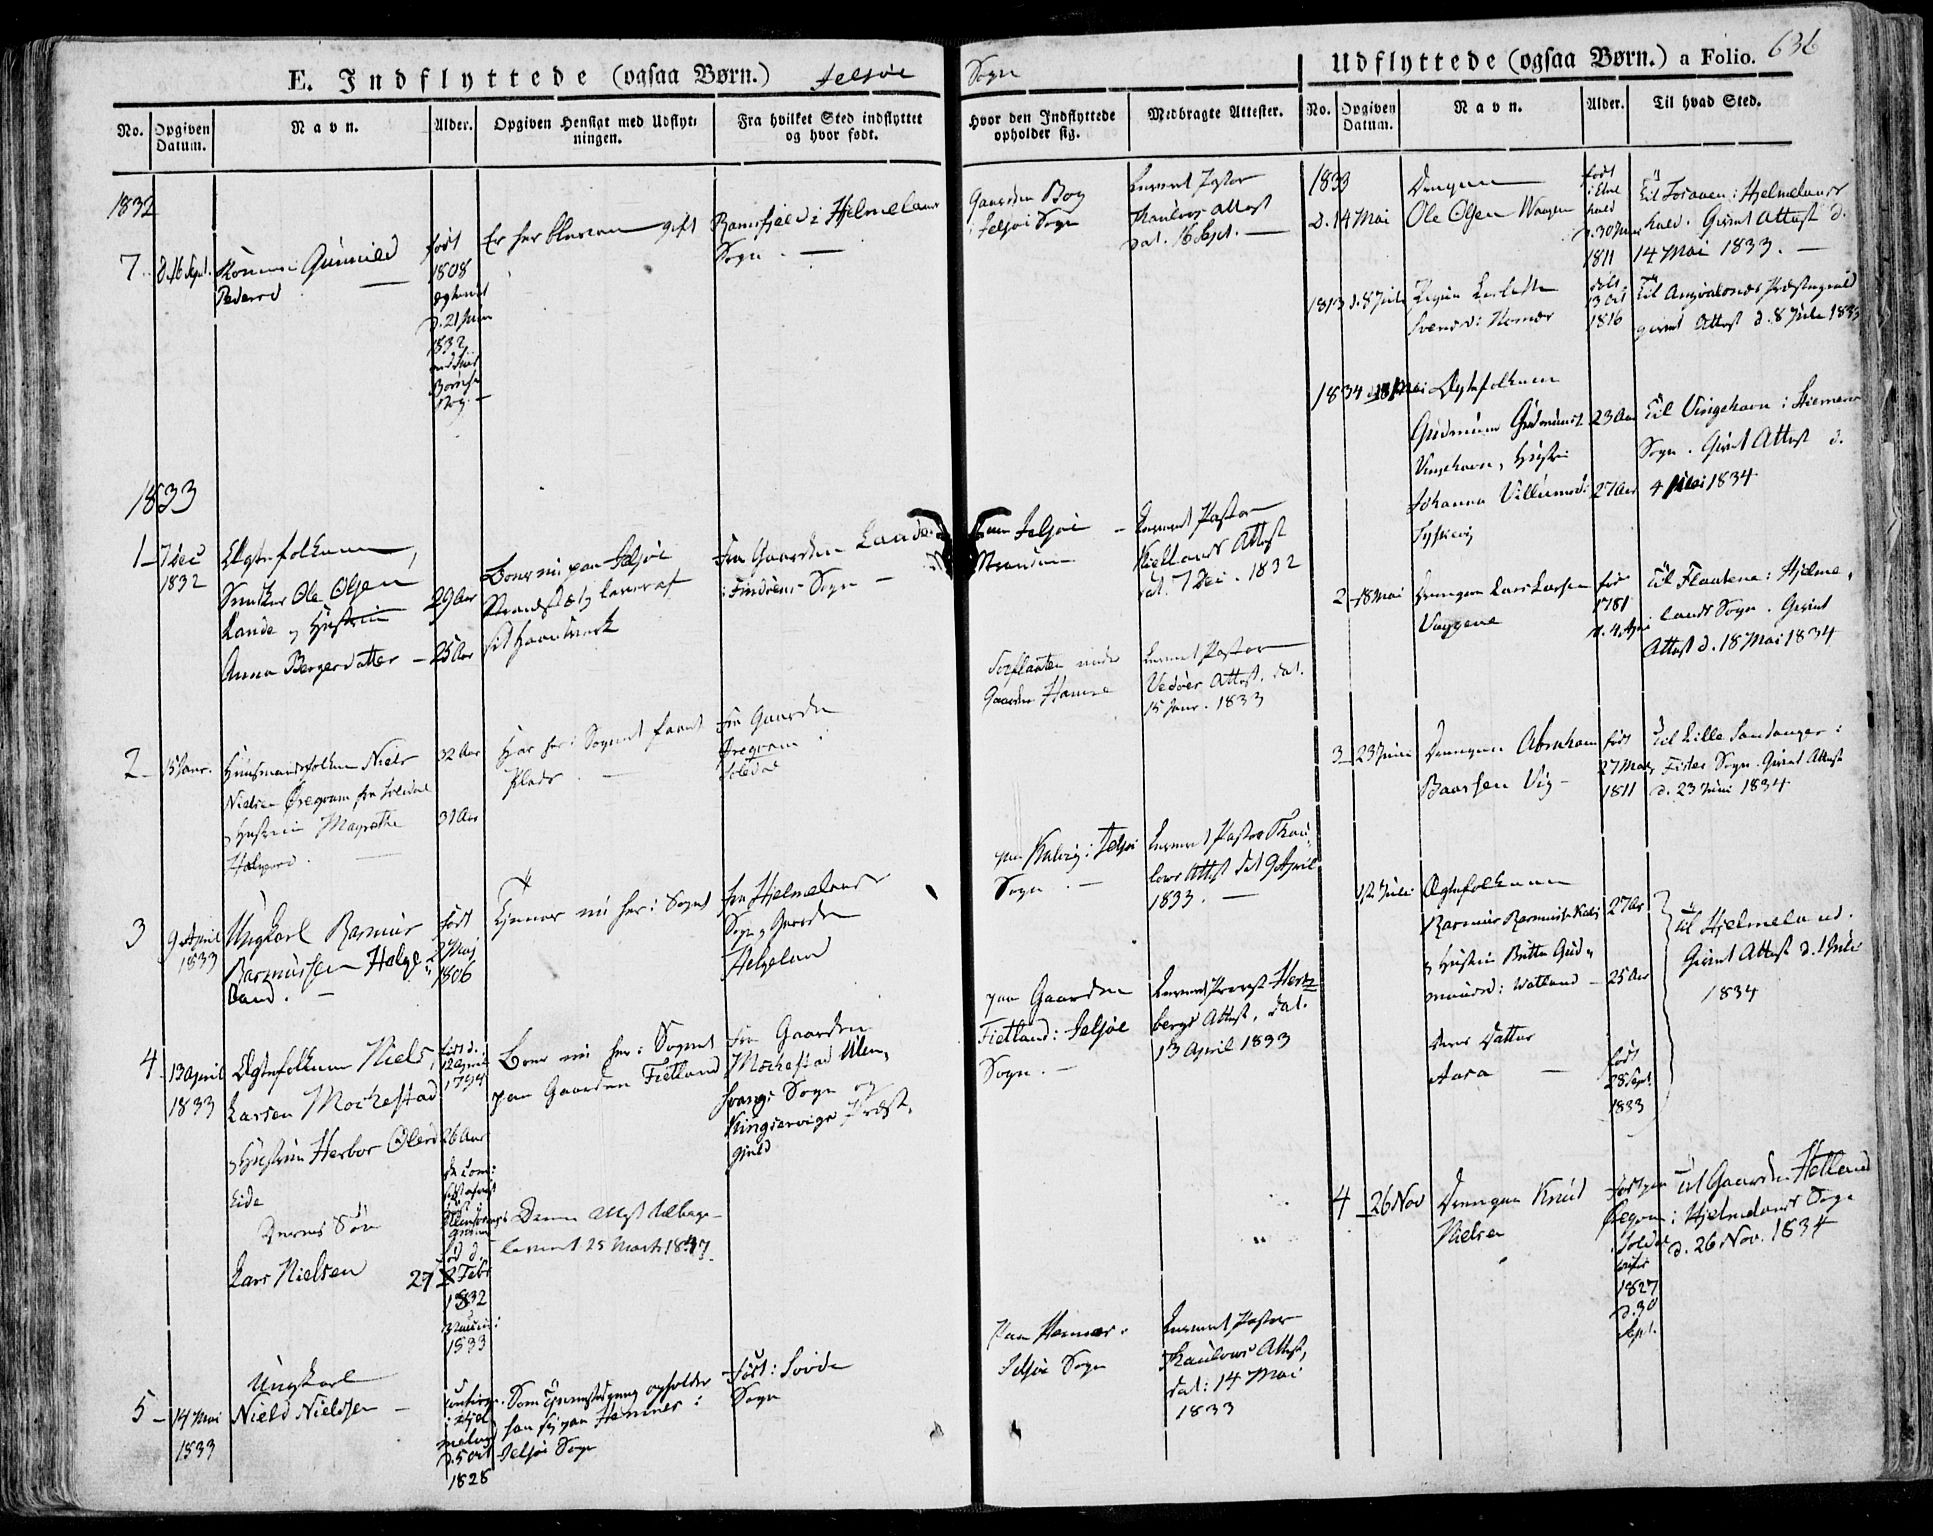 E. Indflyttede (ogsaa Børn.) Jelsøe Sogn
No.
Opgiven Datum.
Navn.
Alder.
Opgiven Hensigt med Udflyt-
ningen.
Fra hvilket Sted indflyttet
og hvor født.
Hvor den Indflyttede
opholder sig.
Medbragte Attester.
1832
7. d. 16 Sept.
Konen Gunnild
Pedersd
født
1808
d. 21 Juni
1832
Er her bleven gift
Ramsfjeld i Hjelmelands
Sogn. —
Gaarden Bog
i Jelsøe Sogn
Leveret Pastor
Thaulows Attest
dat. 16 Sept. —
1833
1 — 7 Dec
1832
Ægtefolkene,
Snedker Ole Olsen
Lande og Hustrue
Anna Bergersdatter —
29 Aar
25 Aar
Boer nu paa Jelsøe
Strandsted og lever af
sit Haandverk
Fra Gaarden Lande
i Findøens Sogn —
paa Jelsøe
Stranden
Leveret Pastor
Kiellands Attest
dat. 7 Dec. 1832
2 — 15 Janr.
Huusmandsfolkene Niels
Nielsen Øregrom fra Soledal
og Hustrue Magrethe
Halvord. —
32 Aar
31 Aar
Har her i Sognet faaet
Plads. —
Fra Gaarden
Øregrom i
Soledal
under
Gaarden Hamre
Leveret Pastor
Vedøes Attest, dat.
15 Janr. 1833
3
9 April
1833
Ungkarl Rasmus
Rasmussen Helge-
land. —
født
2 Maj
1806
Tjener nu her i Sognet
fra Hjelmelands
Sogn og Gaarden
Helgeland
paa Kalvig i Jelsøe
Sogn. —
Leveret Pastor Thau-
lows Attest dat 9 April
1833. —
4
13 April
1833
Ægtefolkene Niels
Larsen Mockestad
og Hustrue Herbor Olsd
Eide
Deres Søn
Lars Nielsen
født d.
12 April
1794
26 Aar
27 Febr
1832
1833
Boer nu her i Sognet
paa Gaarden Fietland
Denne Attest tilbage-
leveret 25 Marts 1847.
fra Gaarden
Mockestad Ullen-
svangs Sogn
Kingservigs Præst-
gield
paa Gaarden
Fietland i Jelsøe
Sogn. —
Leveret Provst Hertz-
bergs Attest, dat.
13 April 1833
5 — 14 Mai
1833
Ungkarl
Niels Nielsen —
i Hjel
meland
d. 5 Oct
1828
Som Tjenestedreng opholder
han sig paa Hamnes i
Jelsøe Sogn
Født i Sovde
Sogn
Paa Hamnes i
Jelsøe Sogn
Leveret Pastor
Thaulows Attest,
dat: 14 Mai
1833
Udflyttede (ogsaa Børn.) a Folio. 636
No.
Opgiven Datum.
Navn.
Alder.
Til hvad Sted.
1833
d. 14 Mai
Drengen
Ole Olsen Waagen
født
d. 30
1811
Til Fosaaen i Hjelmelands
hald. Givet Attest d.
14 Mai 1833. —
1833 d. 8 Juli
Pigen
Svensd: Hamer
13 Oct
1816
Til Augvalsnæs Præstegield
givet Attest d. 8 Juli 1833
1834 Mai
Ægtefolkene
Gudmund Gudmunds
Vingehavn, Hustru
Johanna Villumsd:
23 Aar
27 Aar
Til Vingehavn i Skiernerø
Sogn. Givet Attest d.
4 Mai 1834
2 — 18 Mai
Drengen Lars Larsen
Vaagene
fød
1781
d. 4 Apr
Til Flaatene i Hjelme-
lands Sogn. Givet
Attest d. 18 Mai 1834
3 — 23 Juni
Drengen Abraham
Baarsen Vig —
født
27 Mai
1811
Til Lille Sandanger i
Fister Sogn. Givet Attest
d. 23 Juni 1834
12 Juli
Ægtefolkene
Rasmus Rasmussen
og Hustrue Britta Gud-
mundsd: Watland —
deres Datter
Aasa —
27 Ar
25 Aar
født
28 Sept.
1833
til Hjelmeland.
Givet Attest d. 1 Juli
1834
4 — 26 Nov
Drengen Knud
Nielsen
født paa
Øregrom
i Soledal
1827
d. 30
Sept.
Til Gaarden Hetland
i Hjelmelands Sogn
d. 26 Nov. 1834